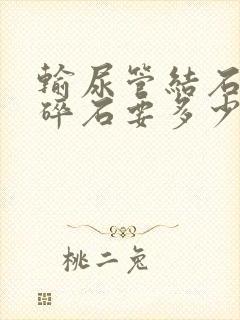 輸尿管結石
碎石要多少
桃二兔